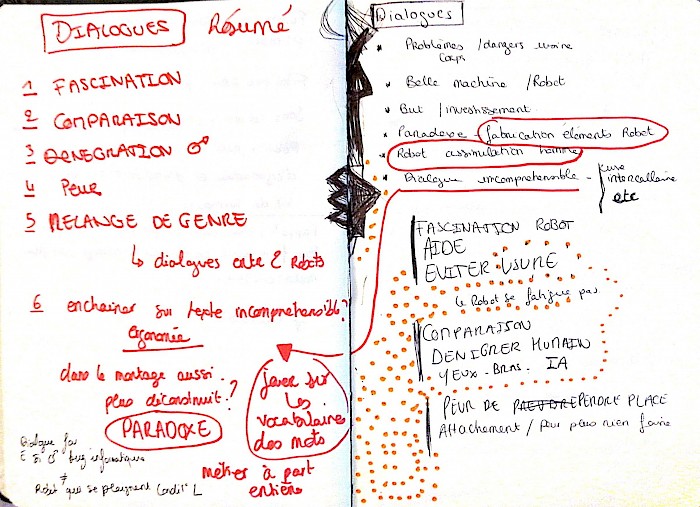 DIALOGUES Résumé
1 FASCINATION
2 COMPARAISON
3 DENEGRATION ♂
4 Peur
5 MELANGE DE GENRE
↳ dialogues entre 2 Robots
6 enchainer sur texte incompréhensible ?
Ergonomie
dans le montage aussi.
plus déconstruit ?
PARADOXE
jouer sur
les
vocabulaires
des mots
métier à part
entière
Dialogue
bug informatique
≠
Robot qui se plaignent
Dialogues
* Problèmes / dangers
Corps
* Belle machine / Robot
* But / investissement
* Paradoxe - fabrication éléments Robot
* Robot assimulation homme
* Dialogue incomprehensible -
intercallaire
etc
FASCINATION ROBOT
AIDE
EVITER USURE
le Robot se fatigue pas
COMPARAISON
DENIGRER HUMAIN
YEUX - BRAS. IA
PEUR DE PRENDRE PLACE
Attachement / Peur plus rien faire